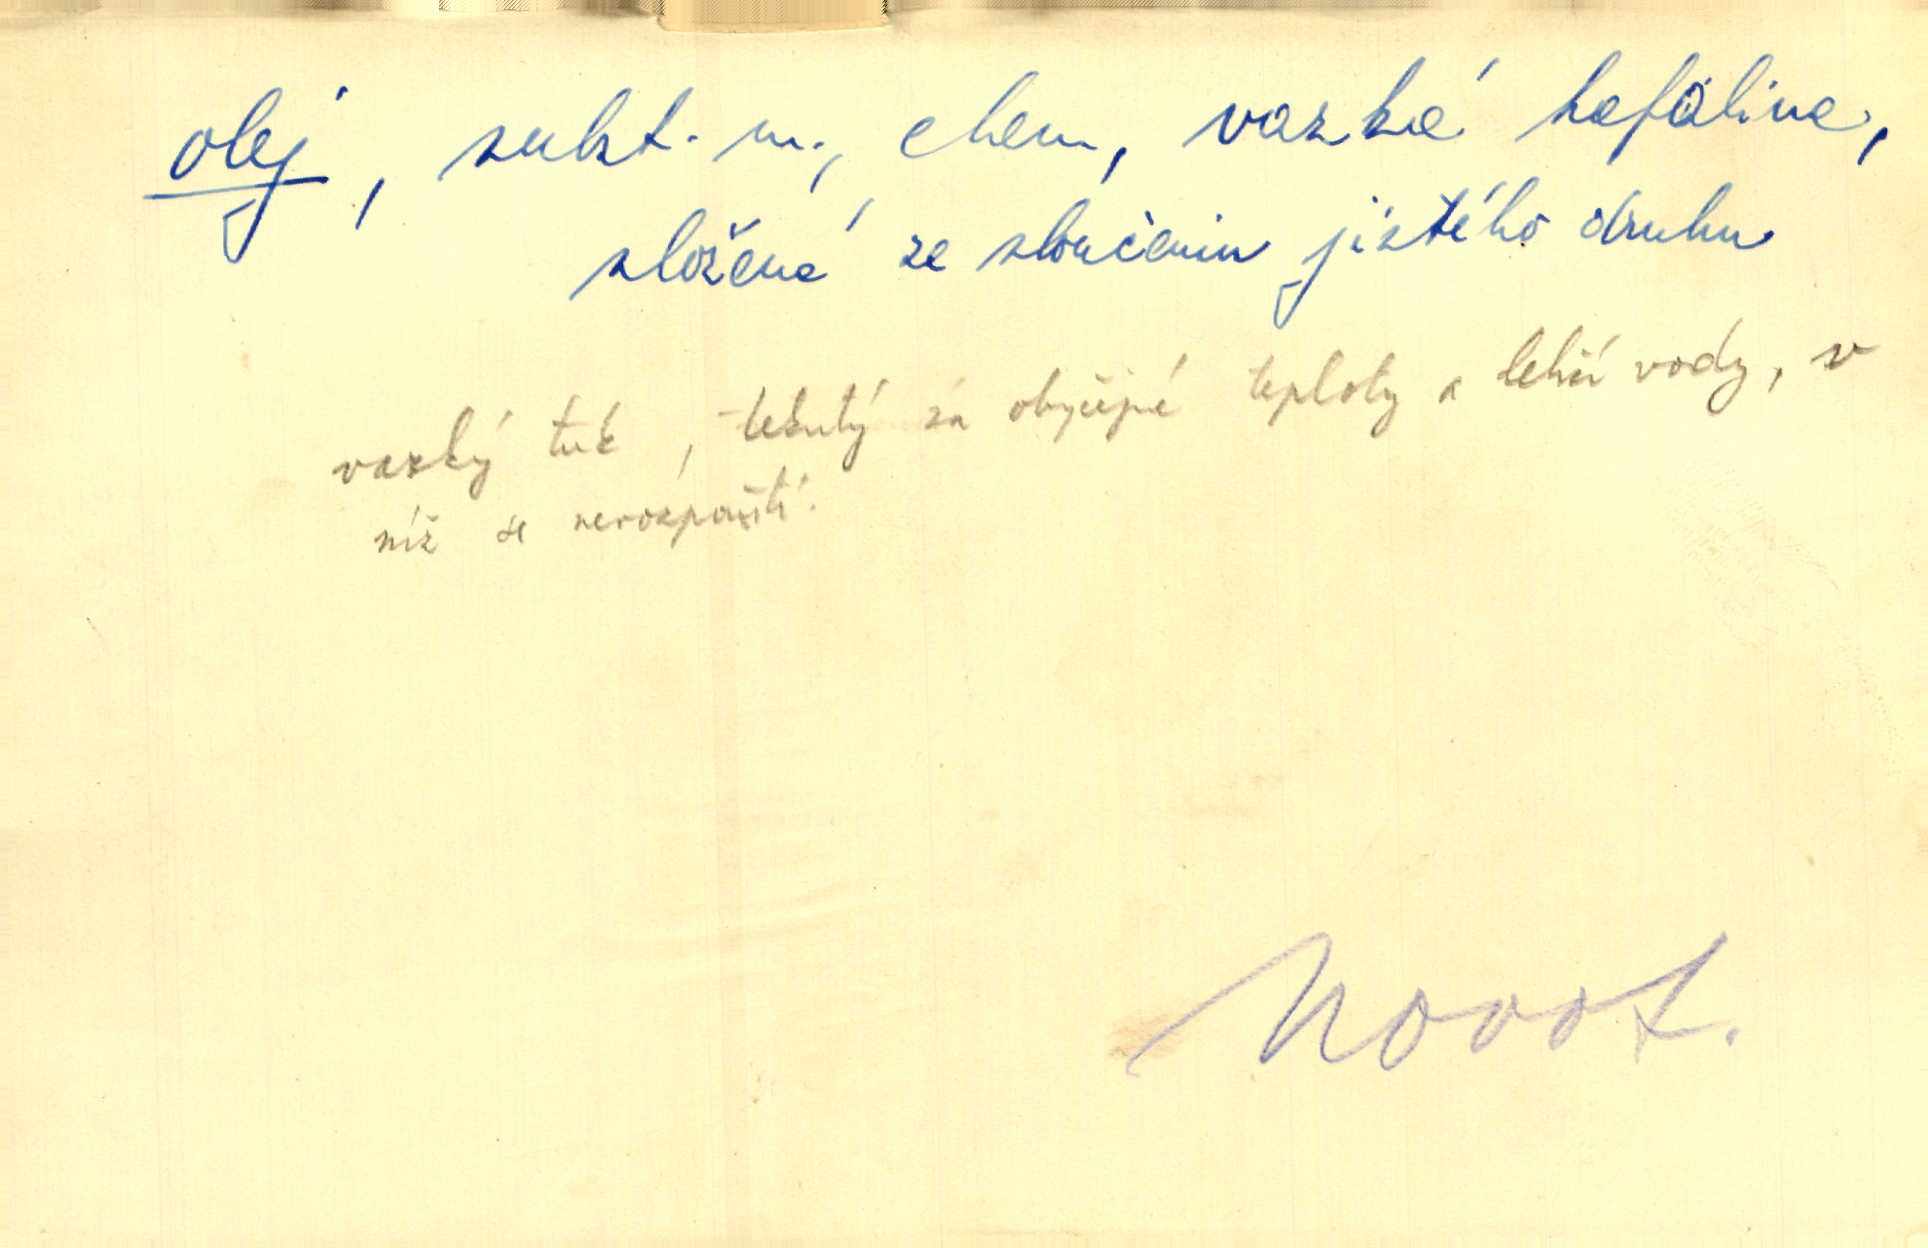 olej, subst. m., chem, vazká kapalina,
složená ze sloučenin jistého druhu
vazký tuk, tekutý za obyčejné teploty a lehčí vody, v
níž se nerozpouští.
Novot.